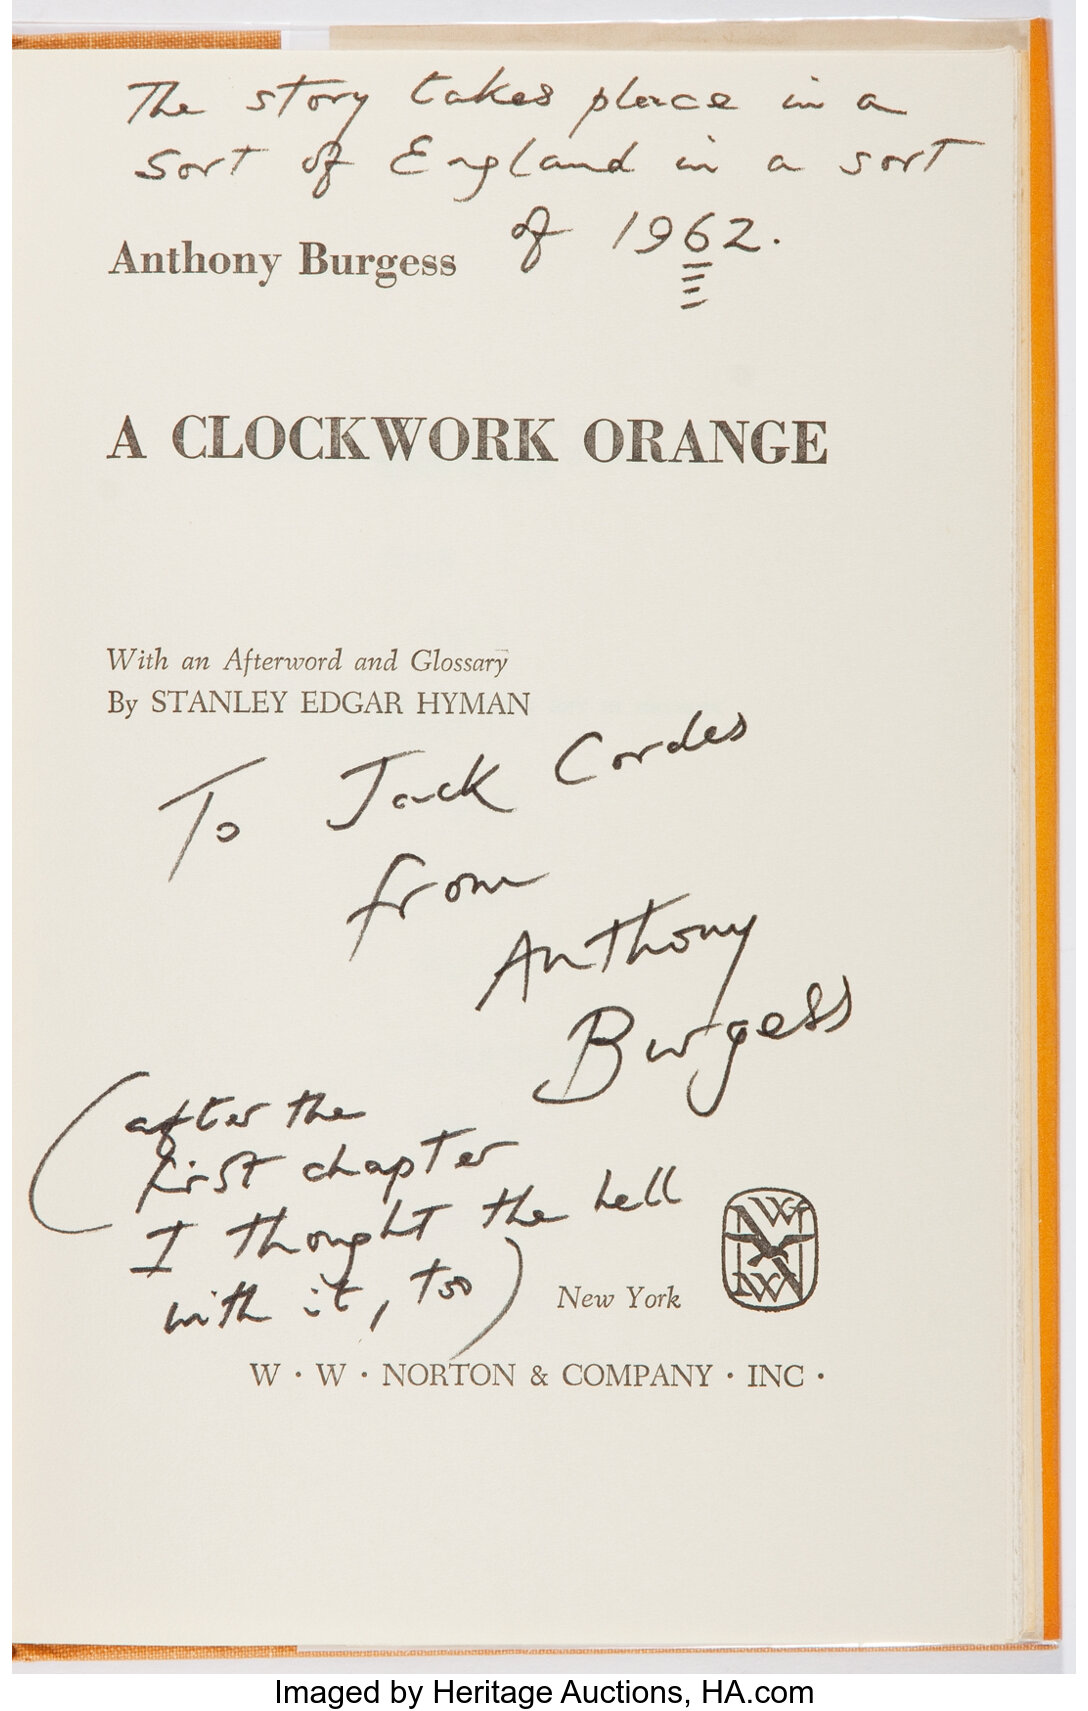 The story takes place in a
sort of England in a sort
of 1962.
Anthony Burgess
A CLOCKWORK ORANGE
With an Afterword and Glossary
By STANLEY EDGAR HYMAN
To Jack Cordes
from
Anthony
Burgess
(after the
first chapter
I thought the hell
with it, too)
New York
W · W · NORTON & COMPANY · INC ·
Imaged by Heritage Auctions, HA.com